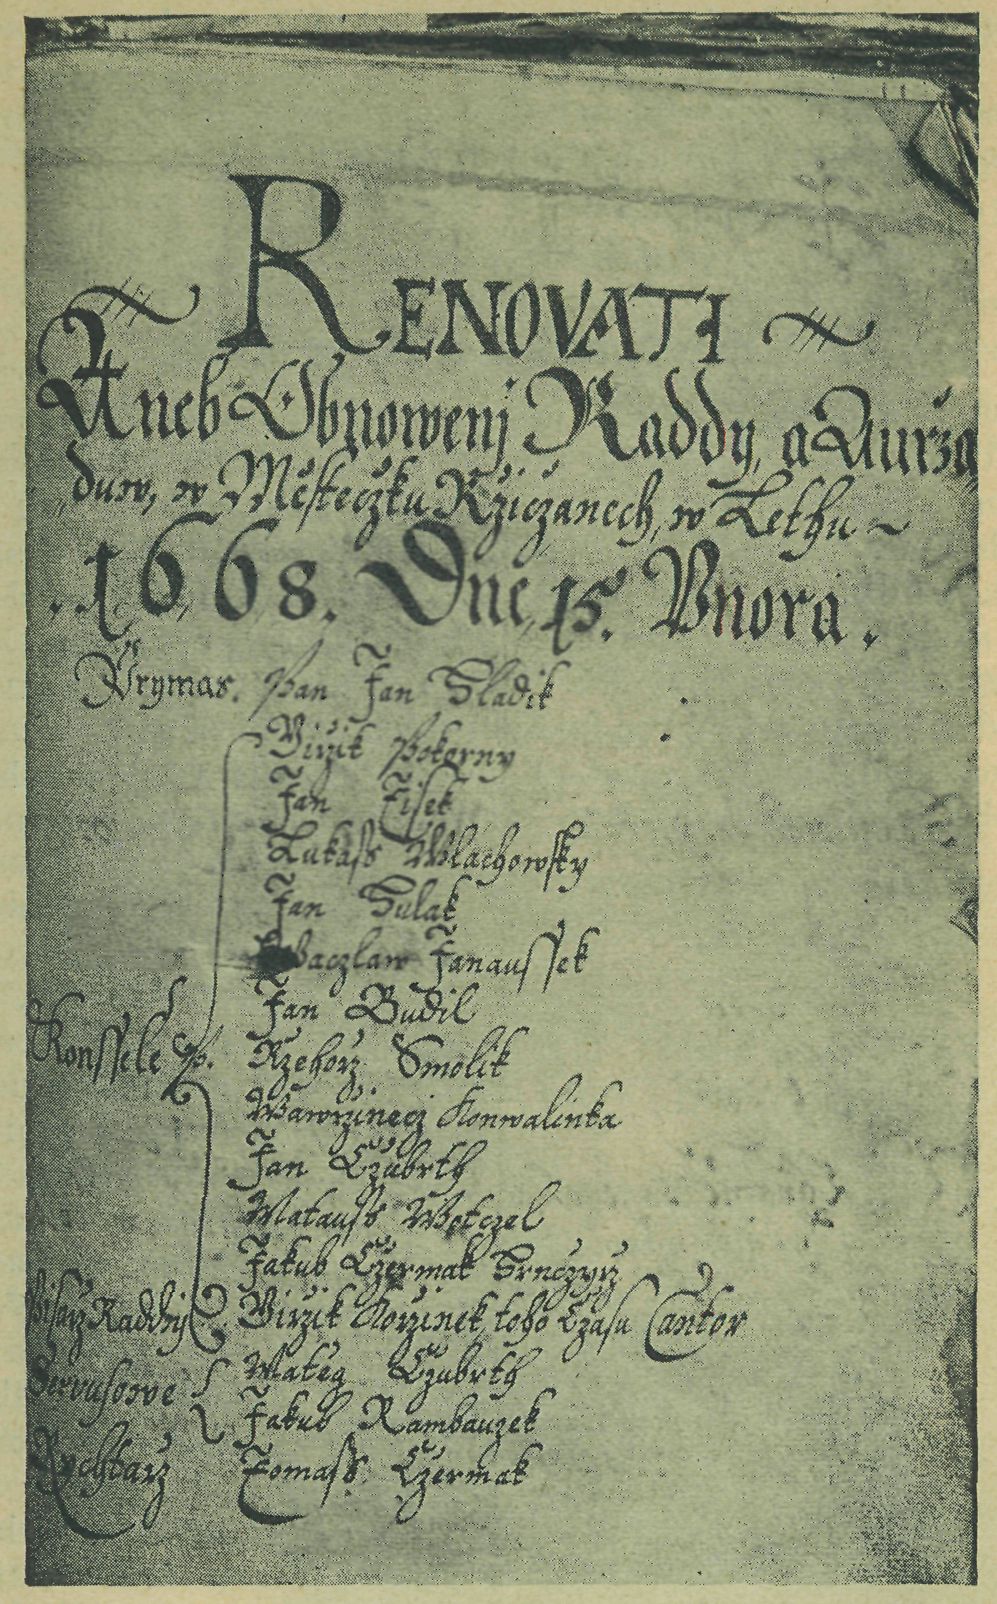 RENOVATI
Aneb Obnowenj Raddy, a Aurża,
duw, w Městeczku Rzieżanech, w Lethu
1668. Dne 15. Vnora.
Prymas. Pan Jan Sladik
Girzik Pokorny
Jan Cisek
Lukass Wlachowsky
Jan Sulak
Waczlaw Janaussek
Jan Budil
Konssele P. Rzehorz Smolik
Wawrzinecz Konwalinka
Jan Czubrth
Matauss Wotczel
Jakub Czermak
Pisarz Raddnj Girzik Korzinek, toho Czasu Cantor
Serwusowe Mateg Czubrth
Jakub Rambauzek
Rychtarz Tomass Czermak